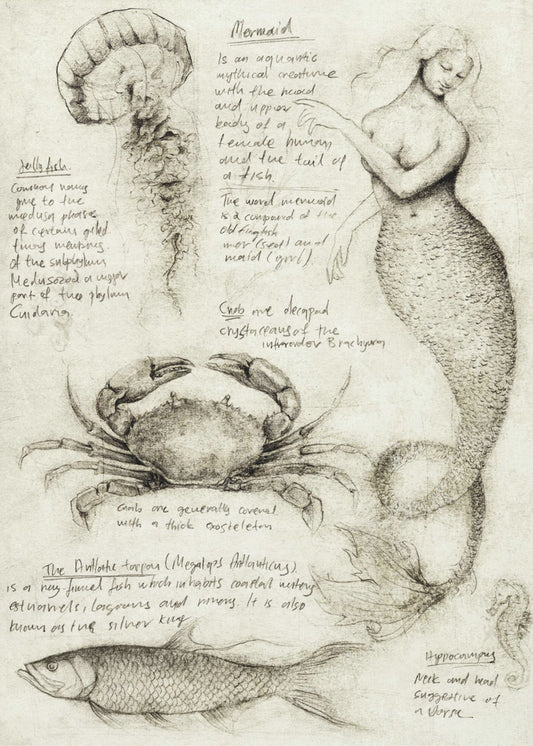 Mermaid
Is an aquatic
mythical creature
with the head
and upper
body of a
female human
and the tail of
a fish.
The word mermaid
is a compound of the
old english
mer (sea) and
maid (girl)
Jellyfish.
Common names
give to the
medusa phases
of certain
members
of the subphylum
Medusozoa a major
part of the phylum
Cnidaria
Crab are decapod
crystaceans of the
infraorder Brachyura
Crab are generally covered
with a thick exosteleton
The Atlantic tarpon (Megalops Atlanticus)
is a ray-finned fish which inhabits coastal waters,
estuaries, lagoons and rivers. It is also
known as the silver king
Hippocampus
Neck and head
suggestive of
a horse